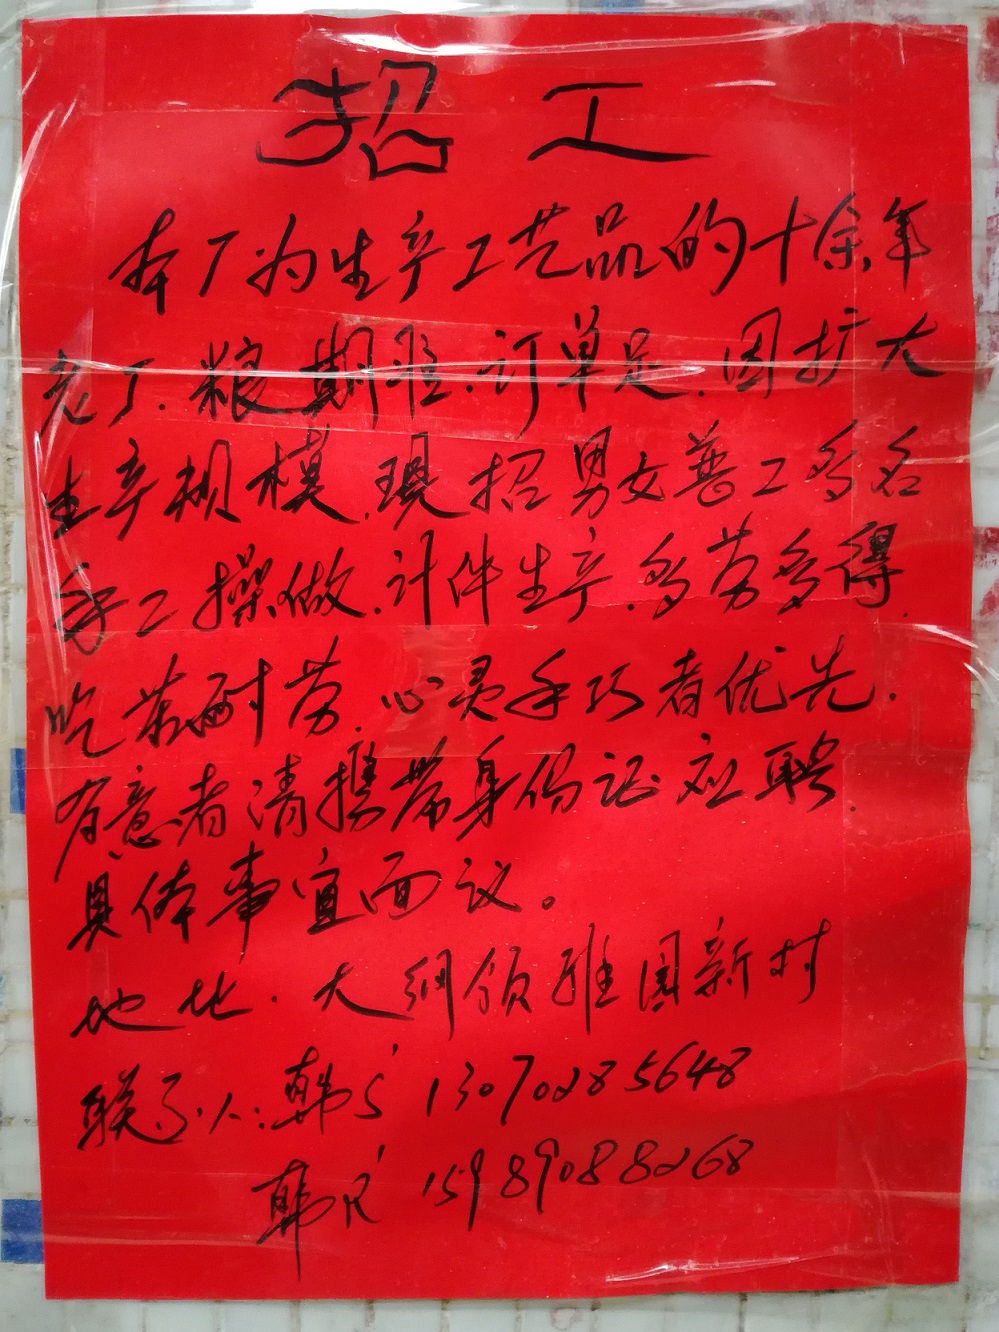 招工
本厂为生产工艺品的十余年
老厂.粮期准.订单足.因扩大
生产规模.现招男女普工多名
手工操做.计件生产.多劳多得.
吃苦耐劳.心灵手巧者优先.
有意者请携带身份证应聘.
具体事宜面议。
地址.大纲领雅园新村
联系人:韩 13070285648
韩 15989088268